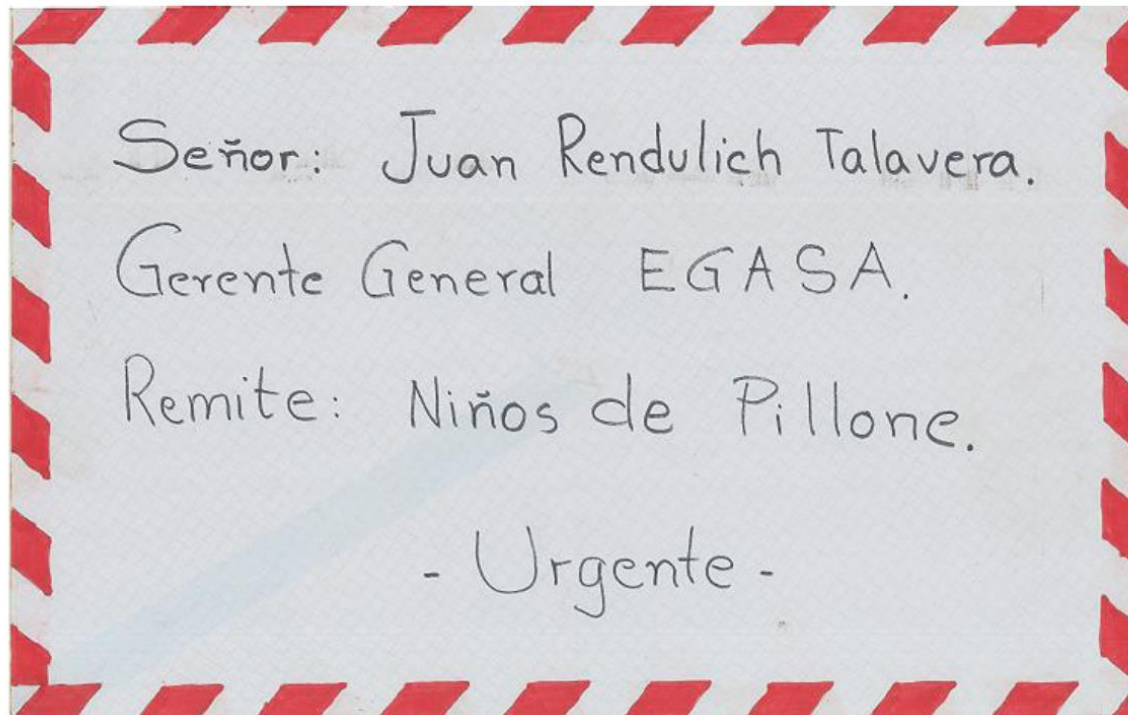 Señor: Juan Rendulich Talavera.
Gerente General EGASA.
Remite: Niños de Pillone.
- Urgente -